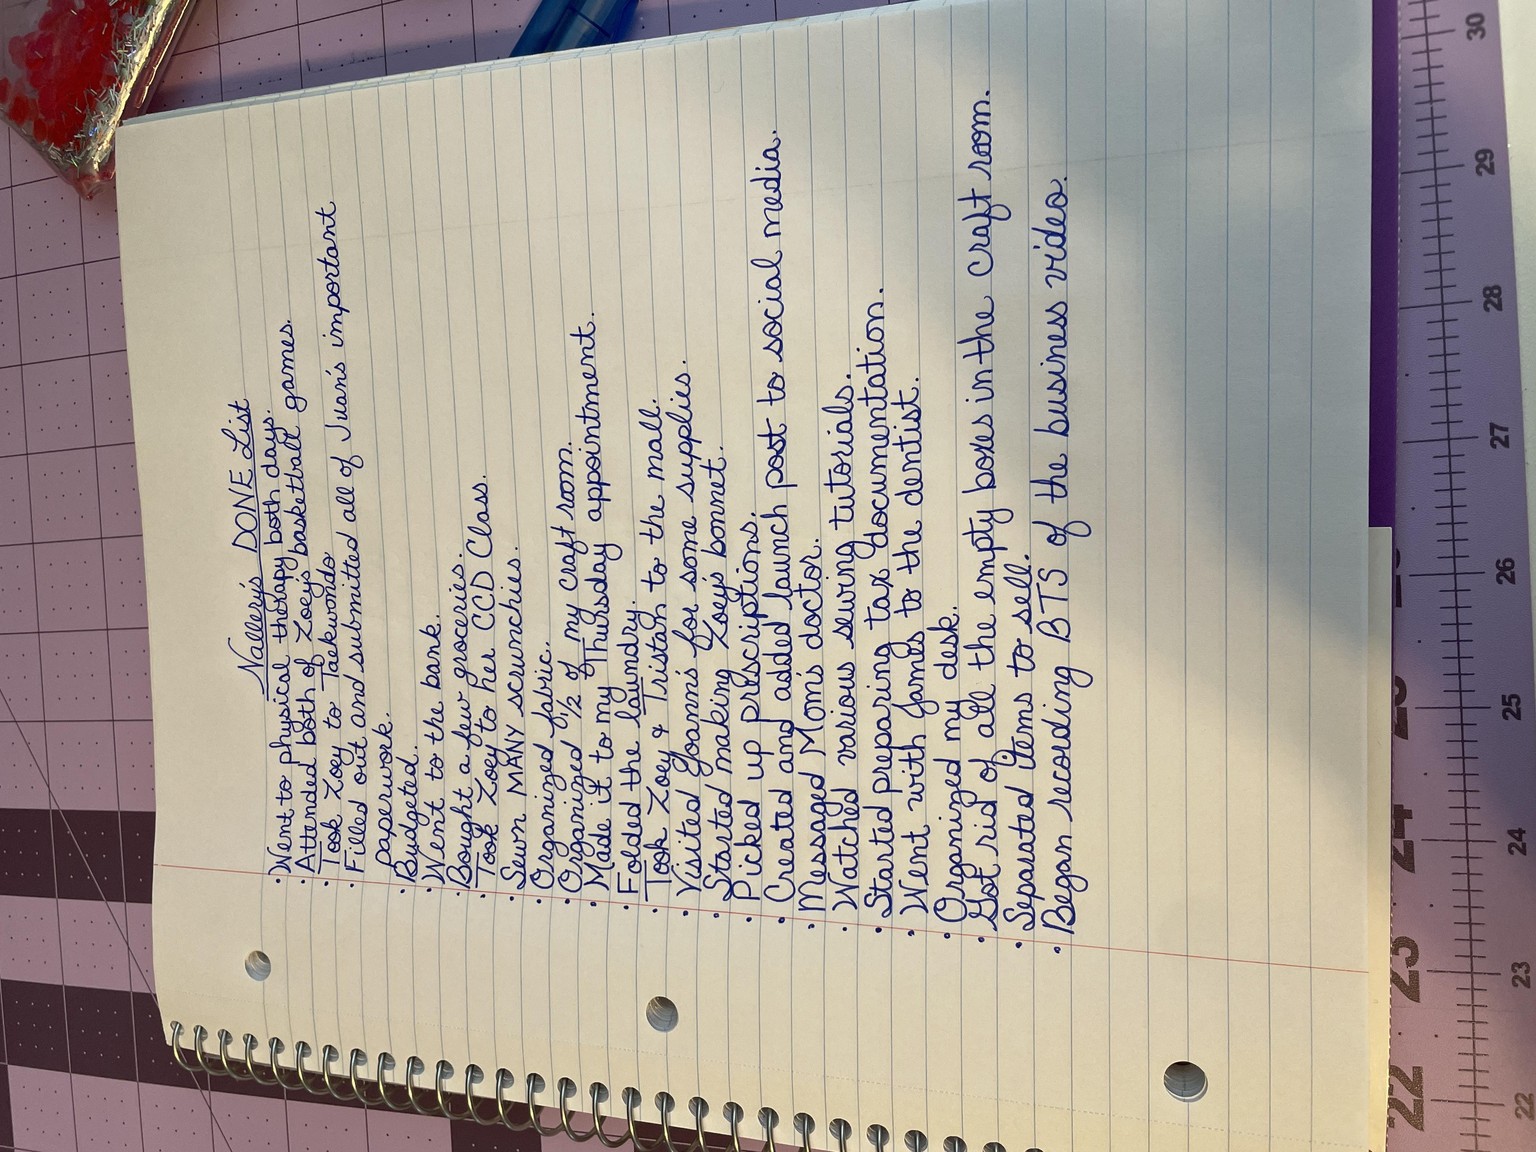 Nallery's DONE List
· Went to physical therapy both days.
· Attended both of Zoey's basketball games.
· Took Zoey to Taekwondo
· Filled out and submitted all of Juan's important
paperwork.
· Budgeted.
· Went to the bank.
· Bought a few groceries.
· Took Zoey to her CCD Class.
· Sewn MANY scrunchies.
· Organized fabric.
· Organized 1/2 of my craft room.
· Made it to my Thursday appointment.
· Folded the laundry.
· Took Zoey & Tristan to the mall.
· Visited Joann's for some supplies.
· Started making Zoey's bonnet.
· Picked up prescriptions.
· Created and added launch post to social media.
· Messaged Mom's doctor.
· Watched various sewing tutorials.
· Started preparing tax documentation.
· Went with James to the dentist.
· Organized my desk.
· Got rid of all the empty boxes in the craft room.
· Separated items to sell.
· Began recording BTS of the business video.
22
23
24
25
26
27
28
29
30
22
23
24